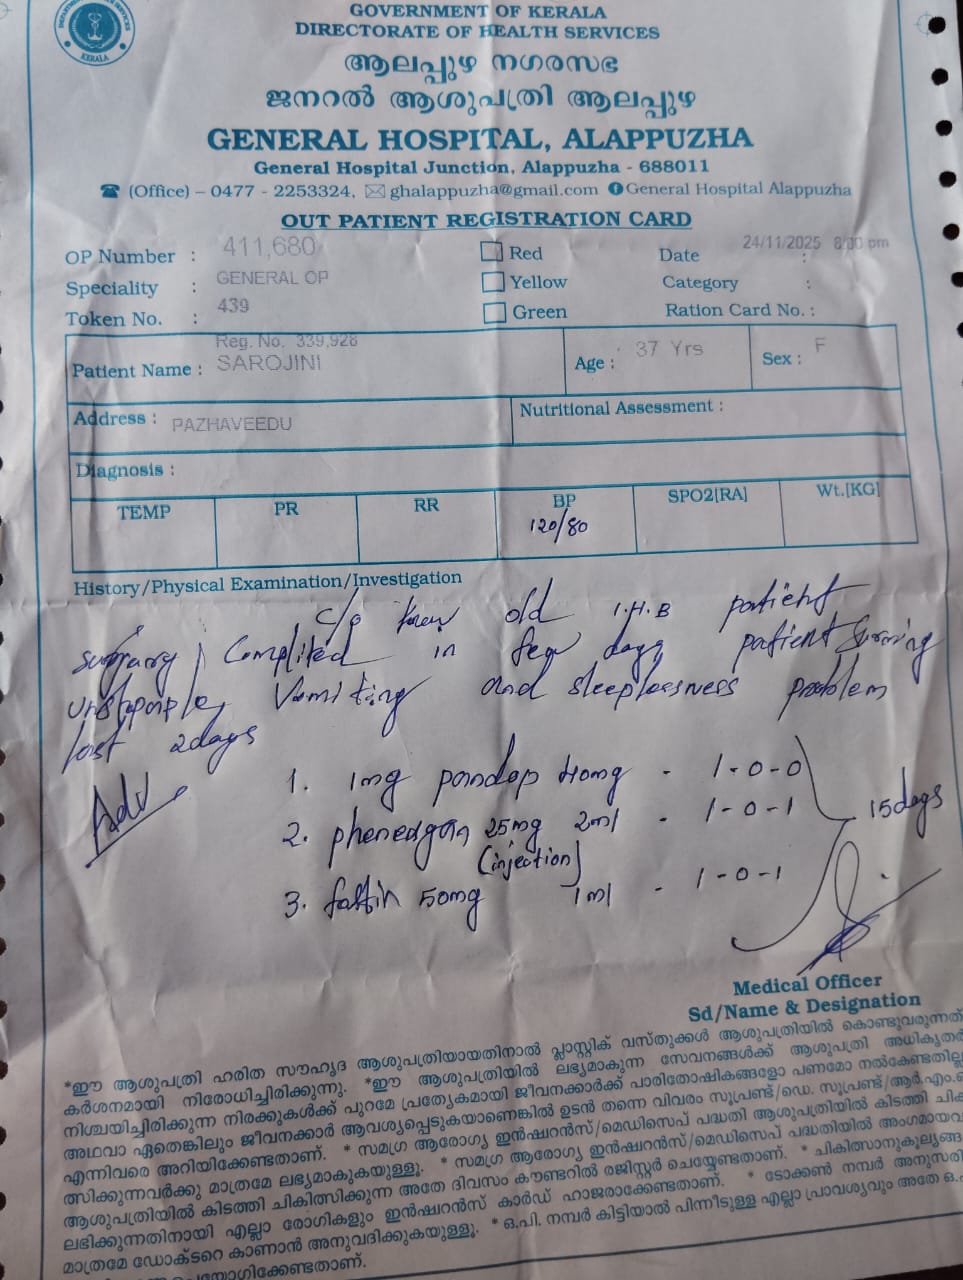 GOVERNMENT OF KERALA
DIRECTORATE OF HEALTH SERVICES
ആലപ്പുഴ നഗരസഭ
ജനറൽ ആശുപത്രി ആലപ്പുഴ
GENERAL HOSPITAL, ALAPPUZHA
General Hospital Junction, Alappuzha - 688011
(Office) – 0477 - 2253324, ghalappuzha@gmail.com General Hospital Alappuzha
OUT PATIENT REGISTRATION CARD
OP Number : 411,680 Red Date : 24/11/2025 pm
Speciality : GENERAL OP Yellow Category :
Token No. : 439 Green Ration Card No. :
Reg. No. 339,928
Patient Name : SAROJINI Age : 37 Yrs Sex : F
Address : PAZHAVEEDU Nutritional Assessment :
Diagnosis :
TEMP PR RR BP SPO2[RA] Wt.[KG]
120/80
History/Physical Examination/Investigation
C/o old I.H.B patient
Complited in few days patient
Vomiting and sleeplessness problem
last 2days
Adv
1. 1mg - 1-0-0
2. 25mg 2ml - 1-0-1 15days
(injection)
3. 50mg 1ml - 1-0-1
Medical Officer
Sd/Name & Designation
*ഈ ആശുപത്രി ഹരിത സൗഹൃദ ആശുപത്രിയായതിനാൽ പ്ലാസ്റ്റിക് വസ്തുക്കൾ ആശുപത്രിയിൽ കൊണ്ടുവരുന്നത്
കർശനമായി നിരോധിച്ചിരിക്കുന്നു. *ഈ ആശുപത്രിയിൽ ലഭ്യമാകുന്ന സേവനങ്ങൾക്ക് ആശുപത്രി അധികൃതർ
നിശ്ചയിച്ചിരിക്കുന്ന നിരക്കുകൾക്ക് പുറമേ പ്രത്യേകമായി ജീവനക്കാർക്ക് പാരിതോഷികങ്ങളോ പണമോ നൽകേണ്ടതില്ല
അഥവാ ഏതെങ്കിലും ജീവനക്കാർ ആവശ്യപ്പെടുകയാണെങ്കിൽ ഉടൻ തന്നെ വിവരം സൂപ്രണ്ട്/ഡെ. സൂപ്രണ്ട്/ആർ.എം.
എന്നിവരെ അറിയിക്കേണ്ടതാണ്. * സമഗ്ര ആരോഗ്യ ഇൻഷുറൻസ്/മെഡിസെപ് പദ്ധതി ആശുപത്രിയിൽ കിടത്തി
ത്സിക്കുന്നവർക്കു മാത്രമേ ലഭ്യമാകുകയുള്ളൂ. * സമഗ്ര ആരോഗ്യ ഇൻഷുറൻസ്/മെഡിസെപ് പദ്ധതിയിൽ അംഗമായവർ
ആശുപത്രിയിൽ കിടത്തി ചികിത്സിക്കുന്ന അതേ ദിവസം കൗണ്ടറിൽ രജിസ്റ്റർ ചെയ്യേണ്ടതാണ്. * ചികിത്സാനുകൂല്യങ്ങൾ
ലഭിക്കുന്നതിനായി എല്ലാ രോഗികളും ഇൻഷുറൻസ് കാർഡ് ഹാജരാക്കേണ്ടതാണ്. * ടോക്കൺ നമ്പർ
മാത്രമേ ഡോക്ടറെ കാണാൻ അനുവദിക്കുകയുള്ളൂ. * ഒ.പി. നമ്പർ കിട്ടിയാൽ പിന്നീടുള്ള എല്ലാ പ്രാവശ്യവും അതേ